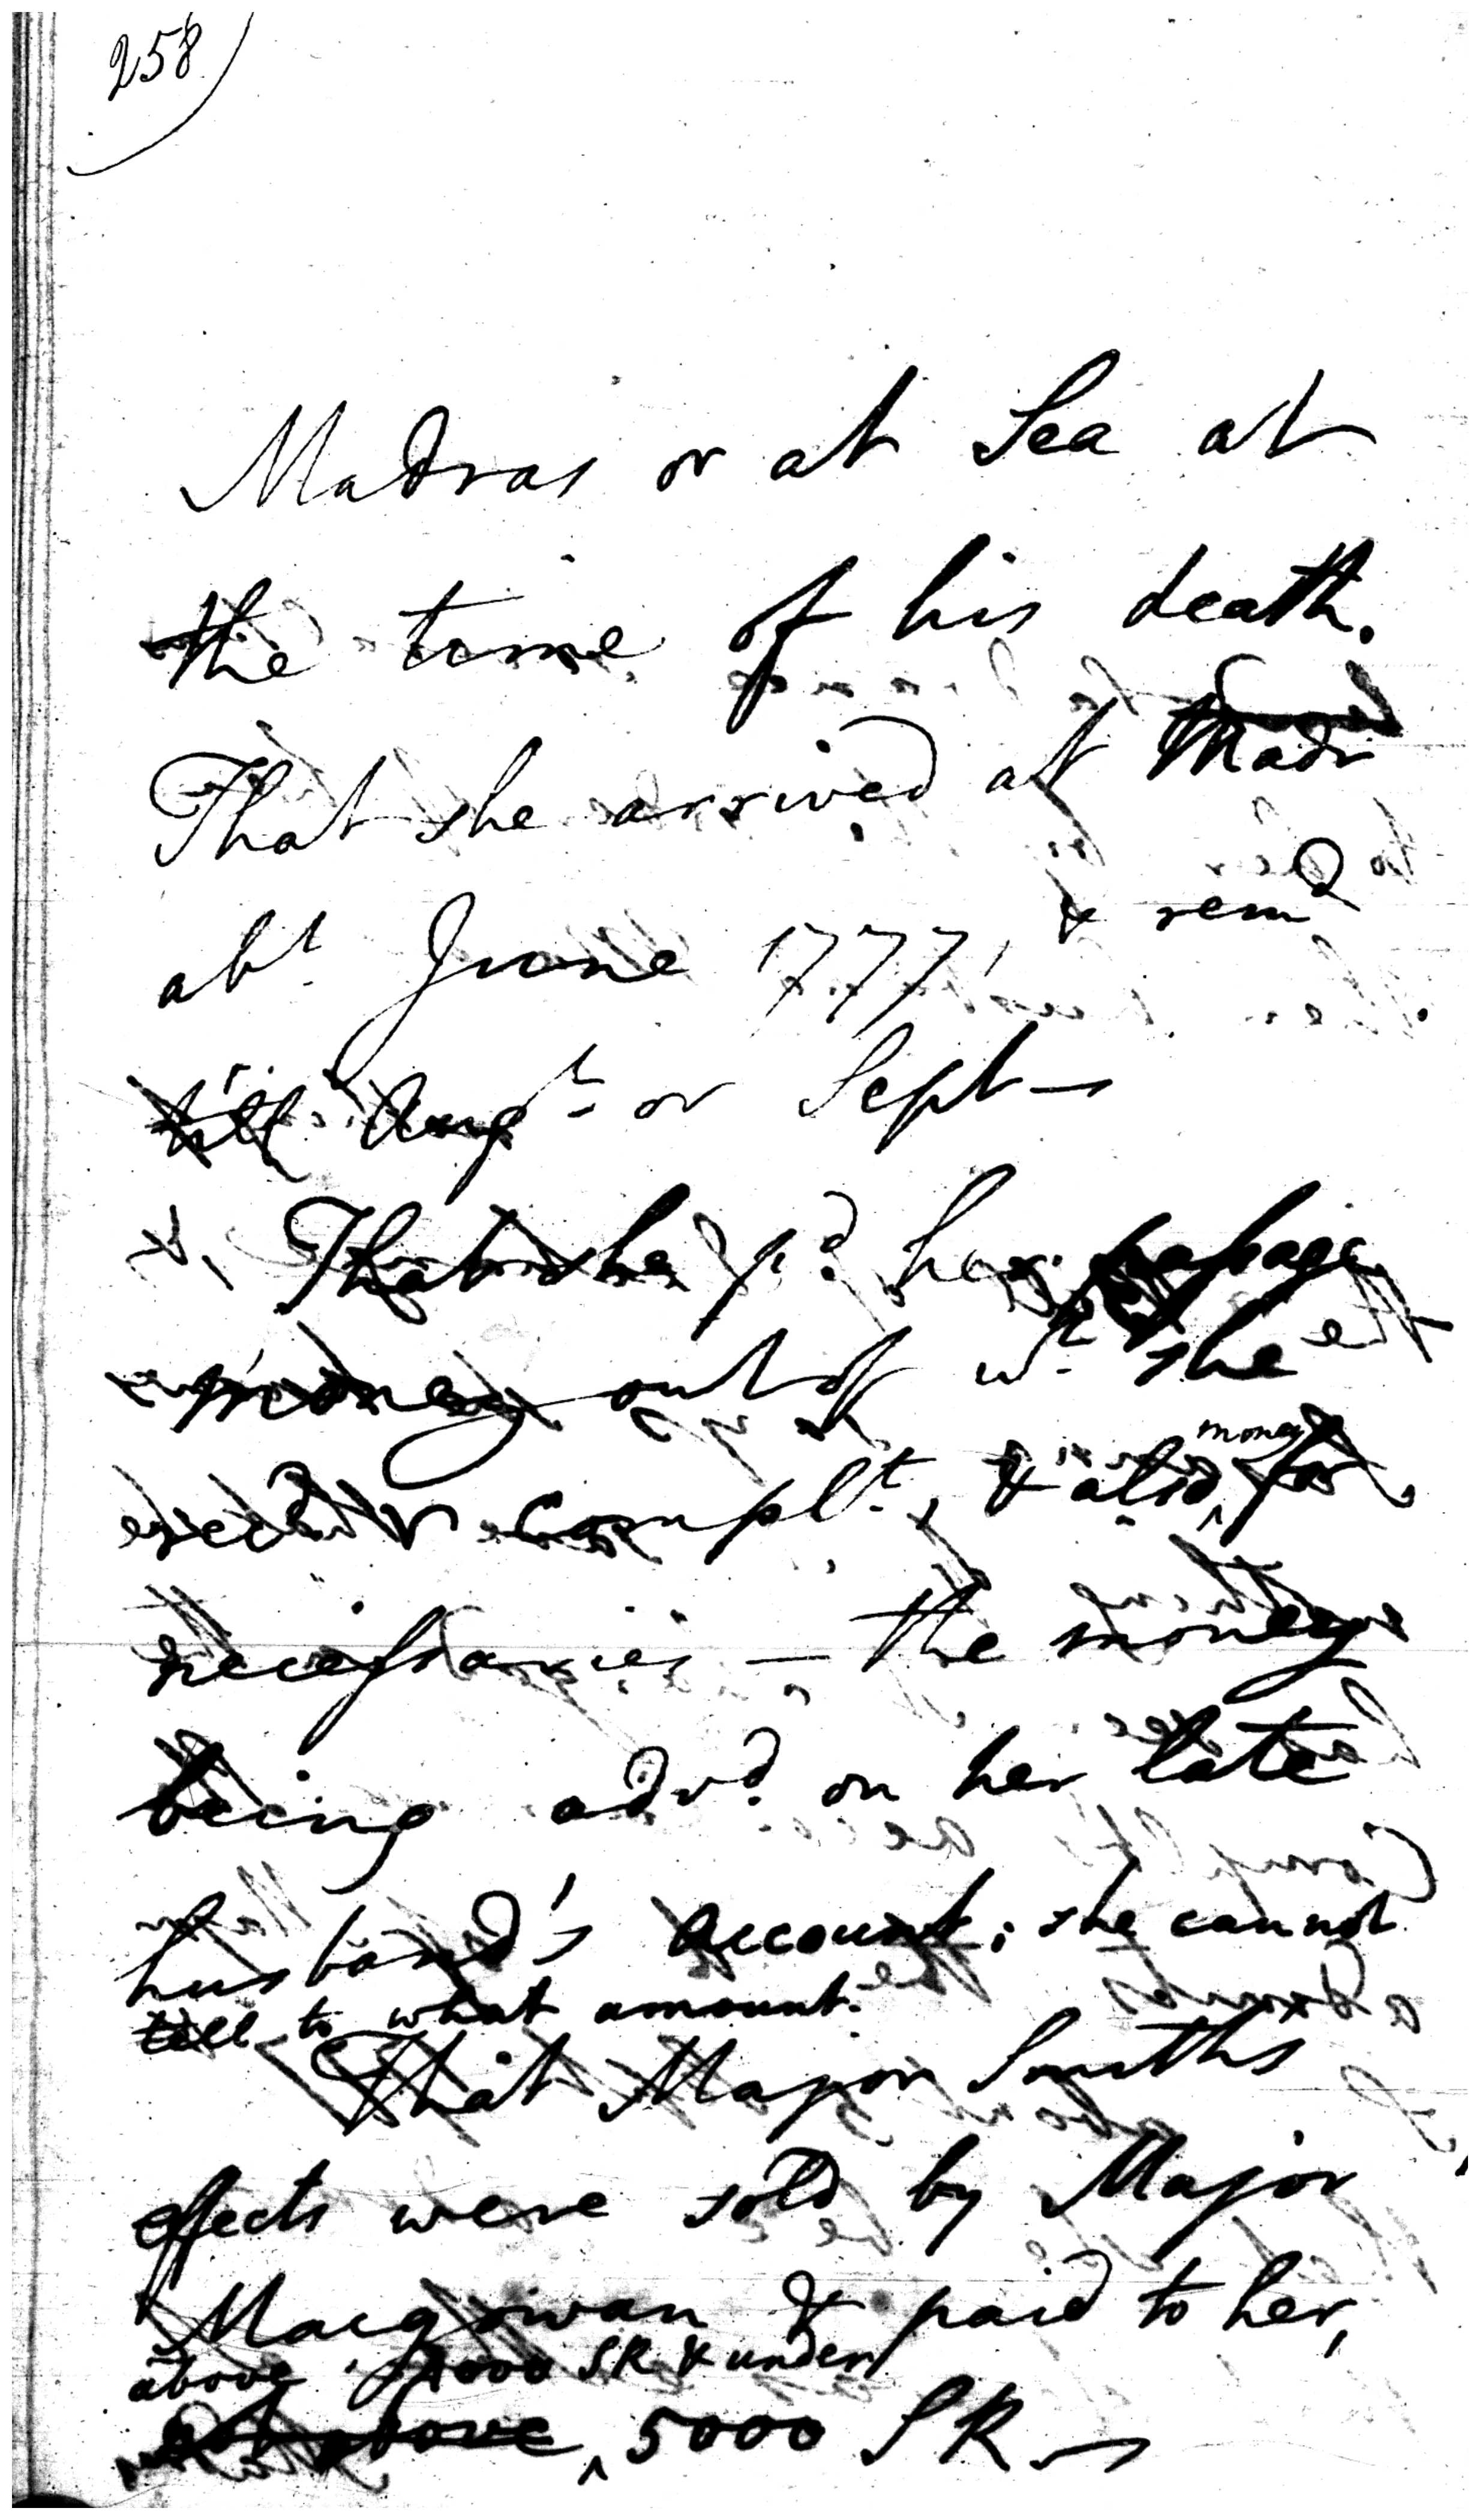 258
Madras or at Sea at
the time of his death.
That she arrived at Madr
abt June 1777, & remd
till Augt or Sept —
That she pd. her passage
money out of wh. she
recd Compt., & also money for
necessaries — the money
being advd. on her late
husband's account; she cannot
tell to what amount.
That Major Smiths
effects were sold by Major
Macgowan & paid to her,
above 000 SR & under
5000 SR —